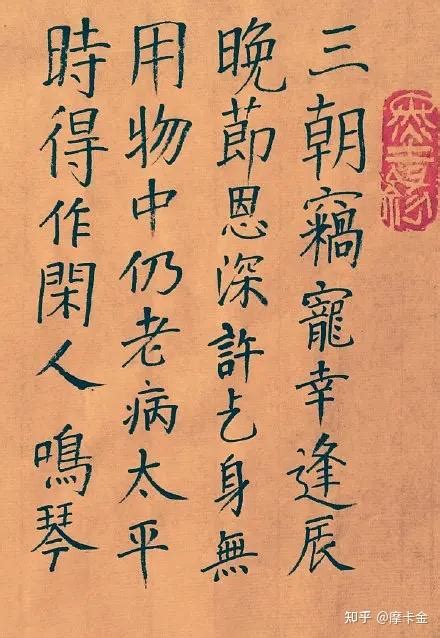 三朝竊寵幸逢辰
晚節恩深許乞身無
用物中仍老病太平
時得作閑人 鳴琴
知乎 @摩卡金